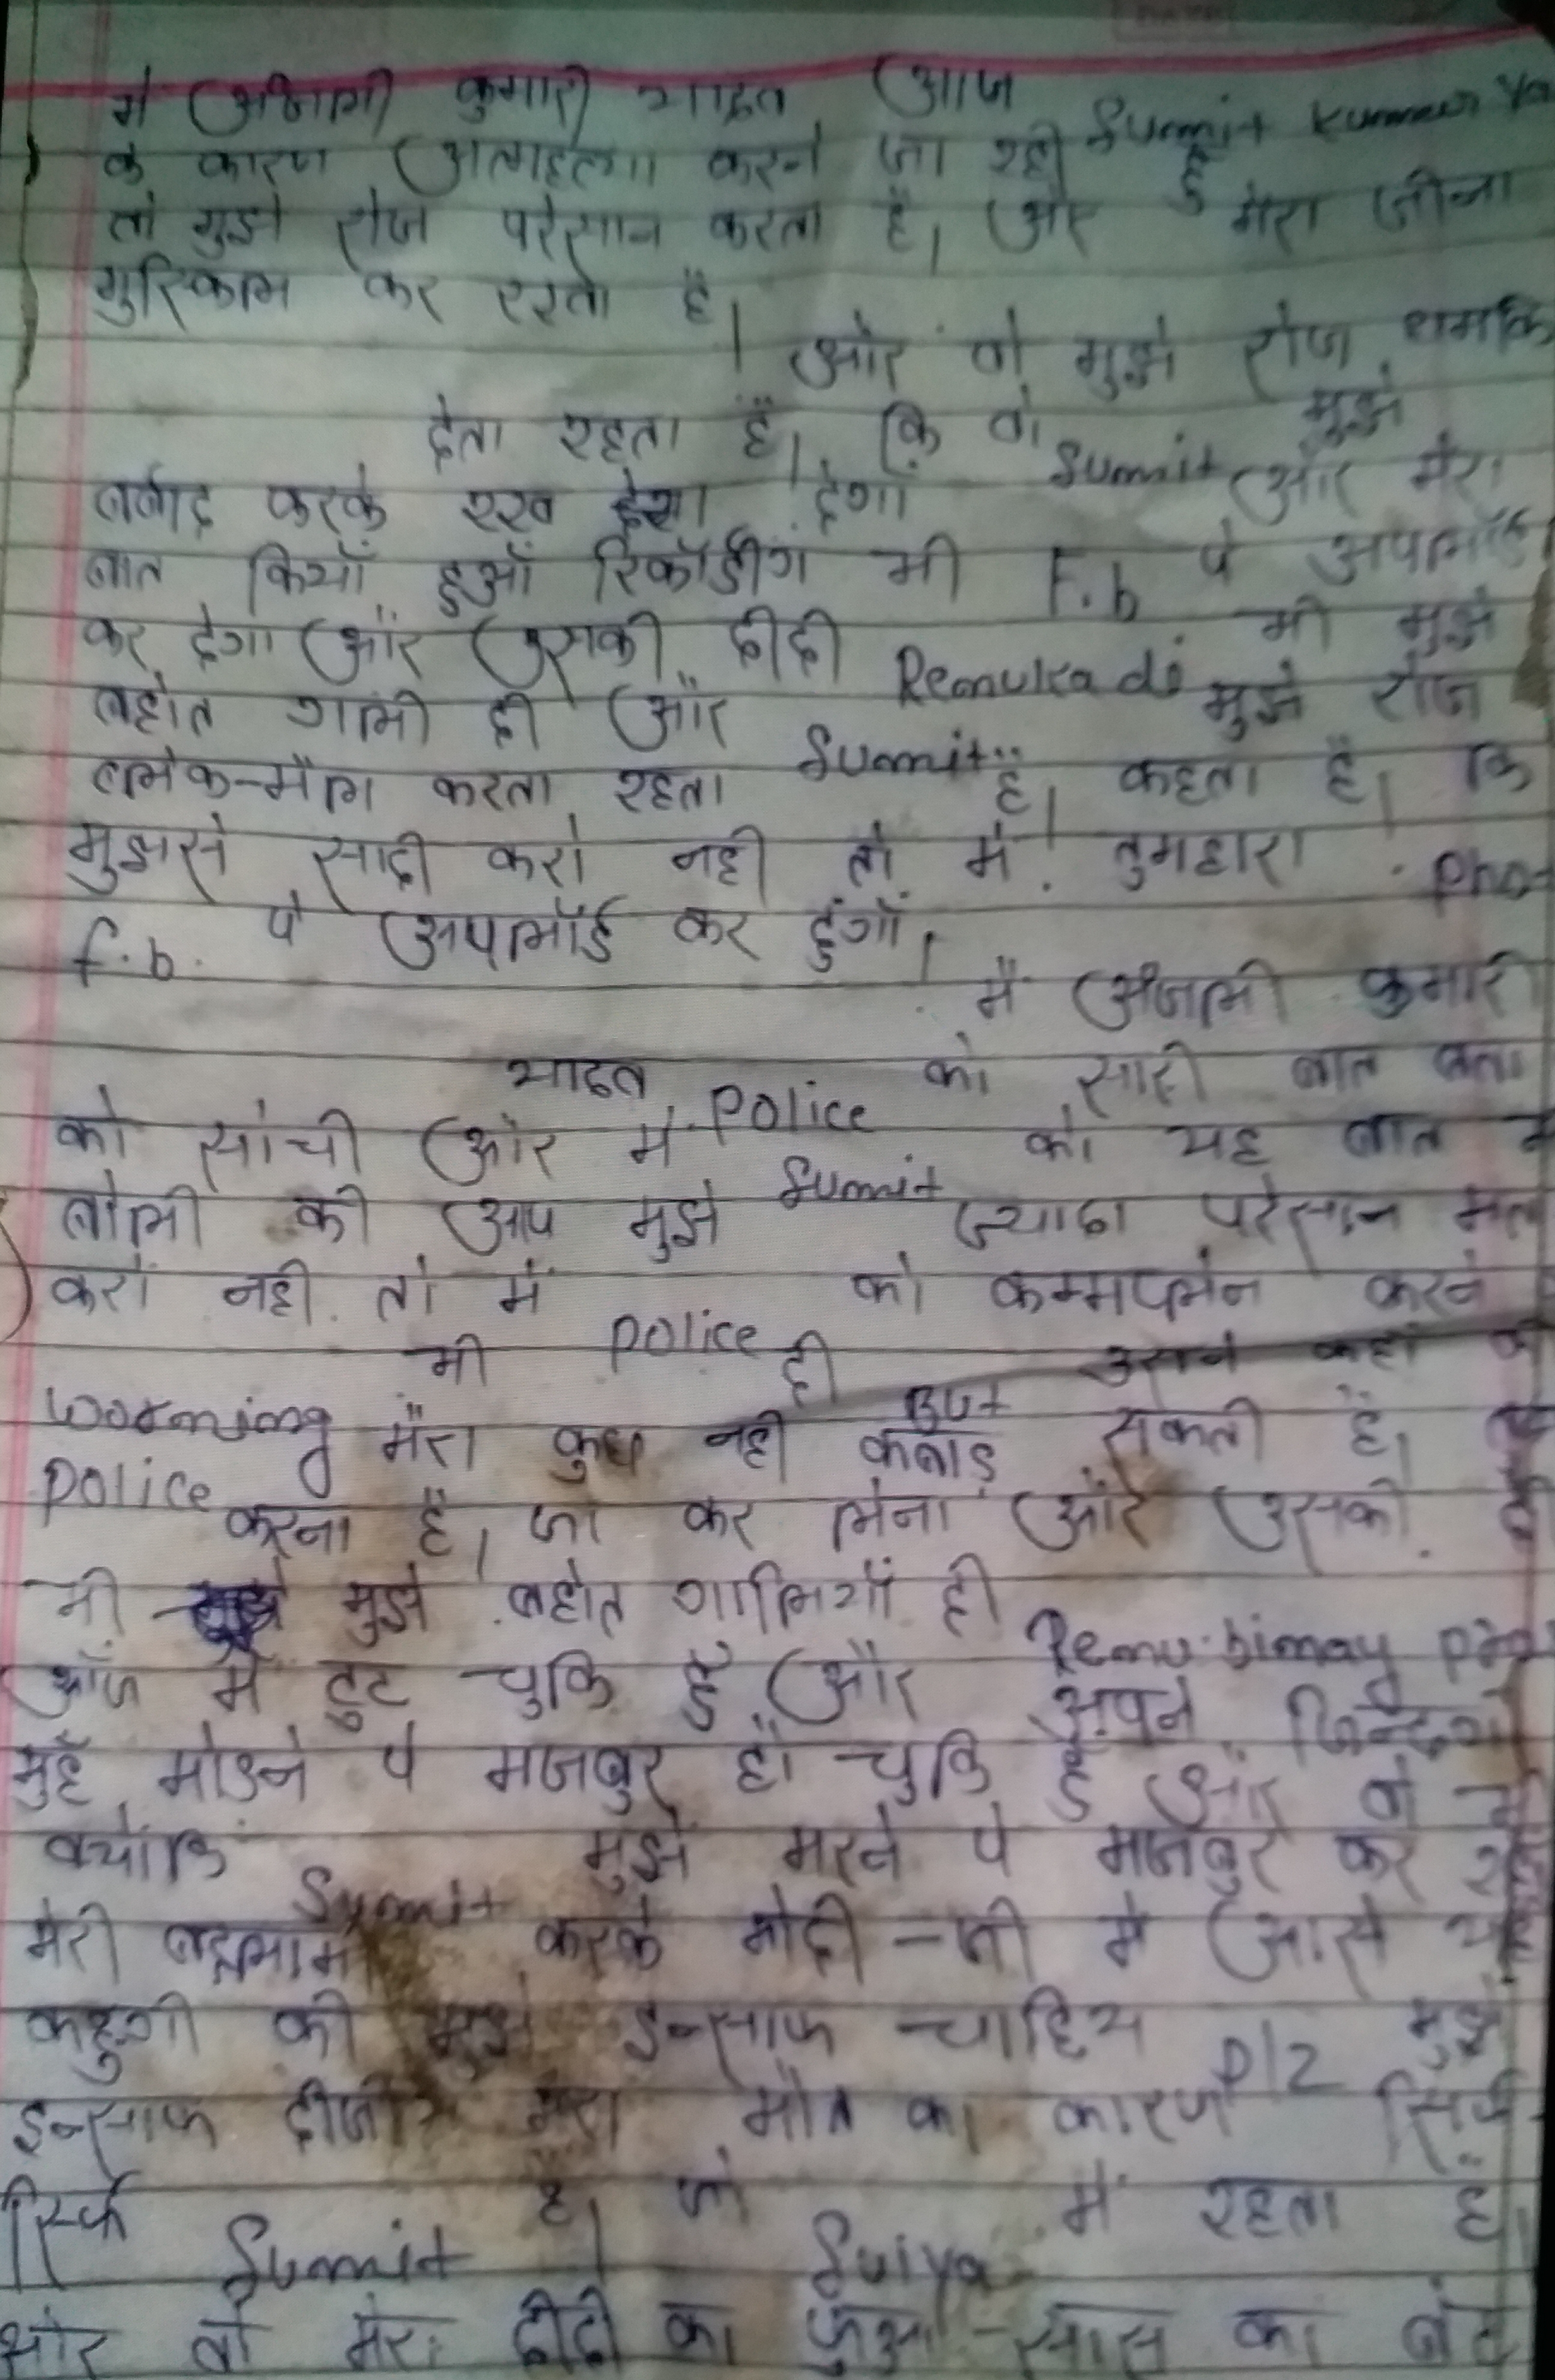 मे अंजली कुमारी यादव आज Sumit kumar Ya
के कारण आत्महत्या करने जा रही हुँ
तो मुझे रोज परेसान करता है। और मेरा जीना
मुश्किल कर रखा है।
और वो मुझे रोज धमकि
देता रहता है। कि वो Sumit मुझे
बर्बाद करके रख देगा और मेरा
बात कियाँ हुआँ रिकॉर्डींग भी F.b पे अपलॉर्ड
कर देगा और उसकी दीदी Renuka di भी मुझे
बहोत गाली दी और Sumit मुझे रोज
ब्लेक-मैल करता रहता है। कहता है। कि
मुझसे सादी करो नही तो मे तुमहारा Pho
f.b. पे अपलॉर्ड कर दुंगाँ।
मैं अंजली कुमारी
यादव Police को सारी बात बता
को सोची और मे Sumit को यह बात
बोली की आप मुझे ज्यादा परेसान मत
करो नही तो में Police को कम्मपलेन करने
Worning भी दी But उसने कहाँ
Police मेरा कुछ नही कबाड़ सकती है।
करना है। जा कर लेना और उसकी
भी मुझे बहोत गालियाँ दी Renu
आँज मे टुट चुकि हुँ और अपने जिन्दगी
मुहँ मोडने पे मजबुर हो चुकि हुँ और वो
क्योकि Sumit मुझे मरने पे माजबुर कर
मेरी बदनामी करके मोदी-जी मे आसे
कहुगी की मुझे इन्साफ चाहिय plz मुझे
इन्साफ दीजीए मेरा मौत का कारण सिर्फ
सिर्फ Sumit है। जो Suiya में रहता है।
और वो मेरा दीदी का फुआ-सास का बेटा